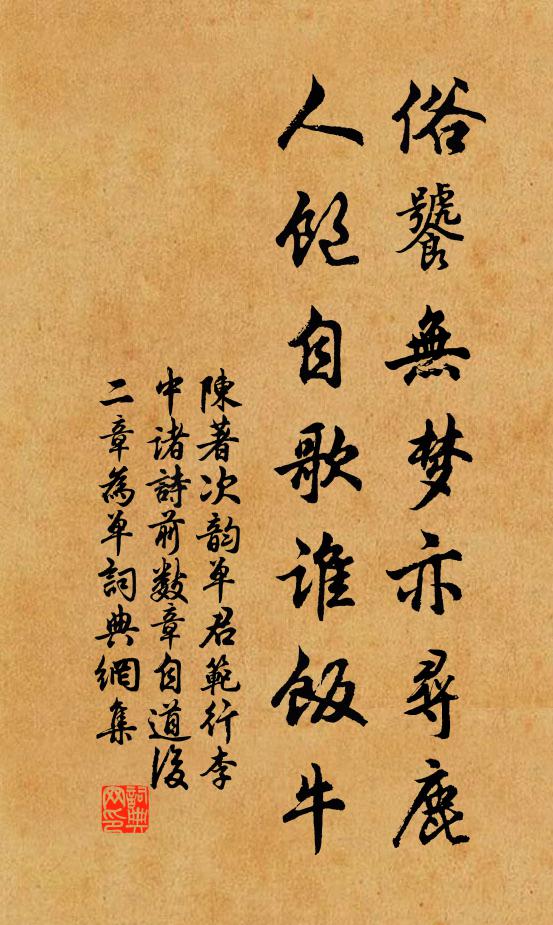 俗饕無梦亦尋鹿
人飽自歌谁飯牛
陳著次韵单君範行李
中诸詩前数章自道後
二章為单詞典網集
詞典网印